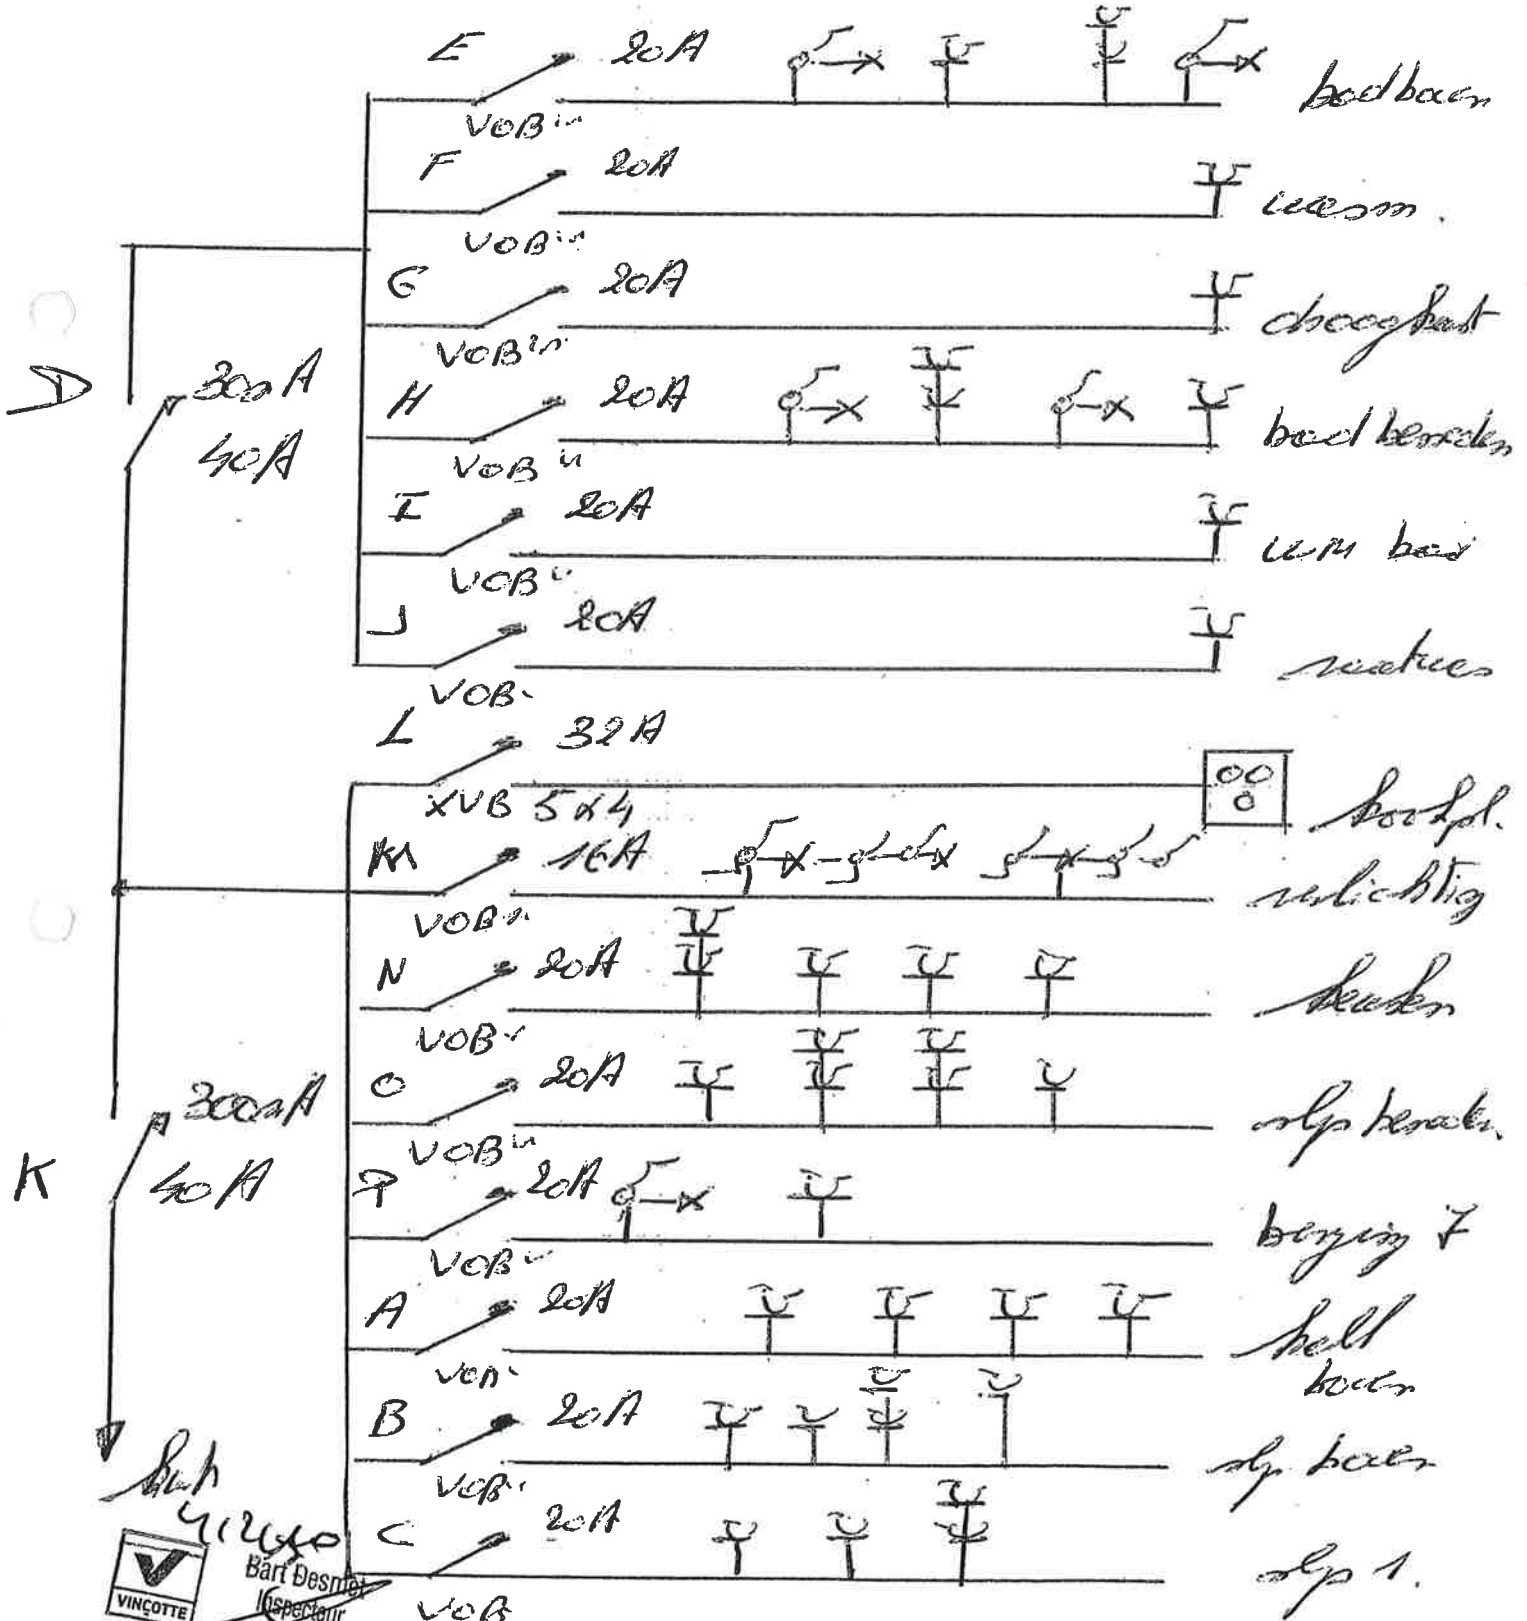 E 20A
bad boven
VOB
F 20A
wasm.
VOB
G 20A
droogkast
VOB
D 300mA
40A
H 20A
bad beneden
VOB
I 20A
WM
VOB
J 20A
VOB
L 32A
XVB 5x4
kookpl.
M 16A
verlichting
VOB
N 20A
keuken
VOB
O 20A
slp beneden.
VOB
K 300mA
40A
P 20A
berging 7
VOB
A 20A
hall
boven
VOB
B 20A
slp. boven
VOB
C 20A
slp 1.
VOB
VINÇOTTE
Bart Desmet
Inspecteur